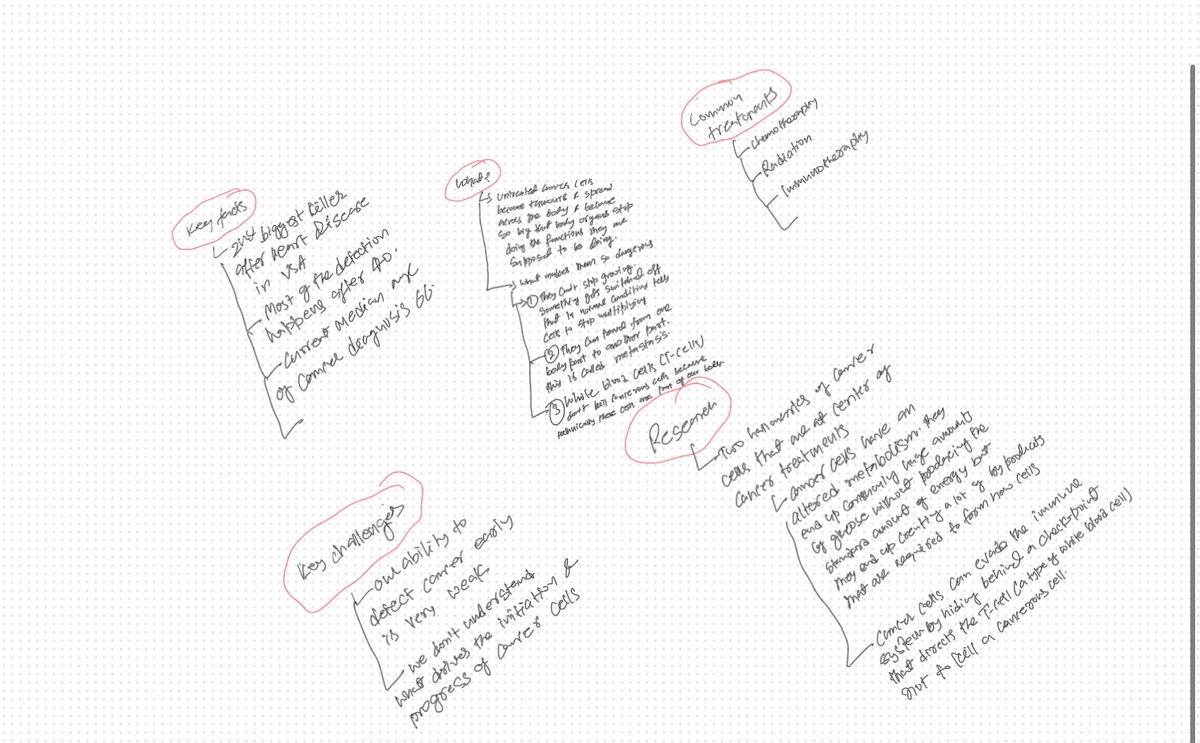 Key facts
2nd biggest killer
after heart disease
in USA
Most of the detection
happens after 40.
current median age
of cancer diagnosis 66.
what?
Untreated cancer cells
become tumours & spread
across the body & become
so big that body organs stop
doing the functions they are
supposed to be doing.
what makes them so dangerous
① They can't stop growing.
Something gets switched off
that in normal condition tells
cells to stop multiplying
② They can travel from one
body part to another part.
this is called metastasis.
③ White blood cells (T-cells)
don't kill cancerous cells because
technically these cells are part of our body
Common
treatments
chemotheraphy
Radiation
Immunotheraphy
Key challenges
our ability to
detect cancer early
is very weak
we don't understand
what drives the initiation &
progress of cancer cells
Research
Two hallmarks of cancer
cells that are at center of
cancer treatments
cancer cells have an
altered metabolism. they
end up consuming huge amounts
of glucose without producing the
standard amount of energy but
they end up creating a lot of by products
that are required to form new cells
Cancer cells can evade the immune
system by hiding behind a check-point
that directs the T-cell (a type of white blood cell)
not to kill a cancerous cell.